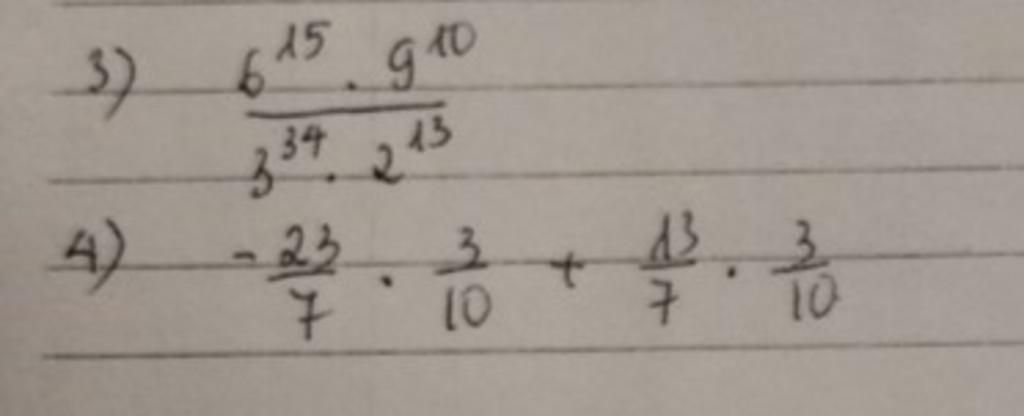 3) \frac{6^{15} \cdot 9^{10}}{3^{34} \cdot 2^{13}}
4) -\frac{23}{7} \cdot \frac{3}{10} + \frac{13}{7} \cdot \frac{3}{10}